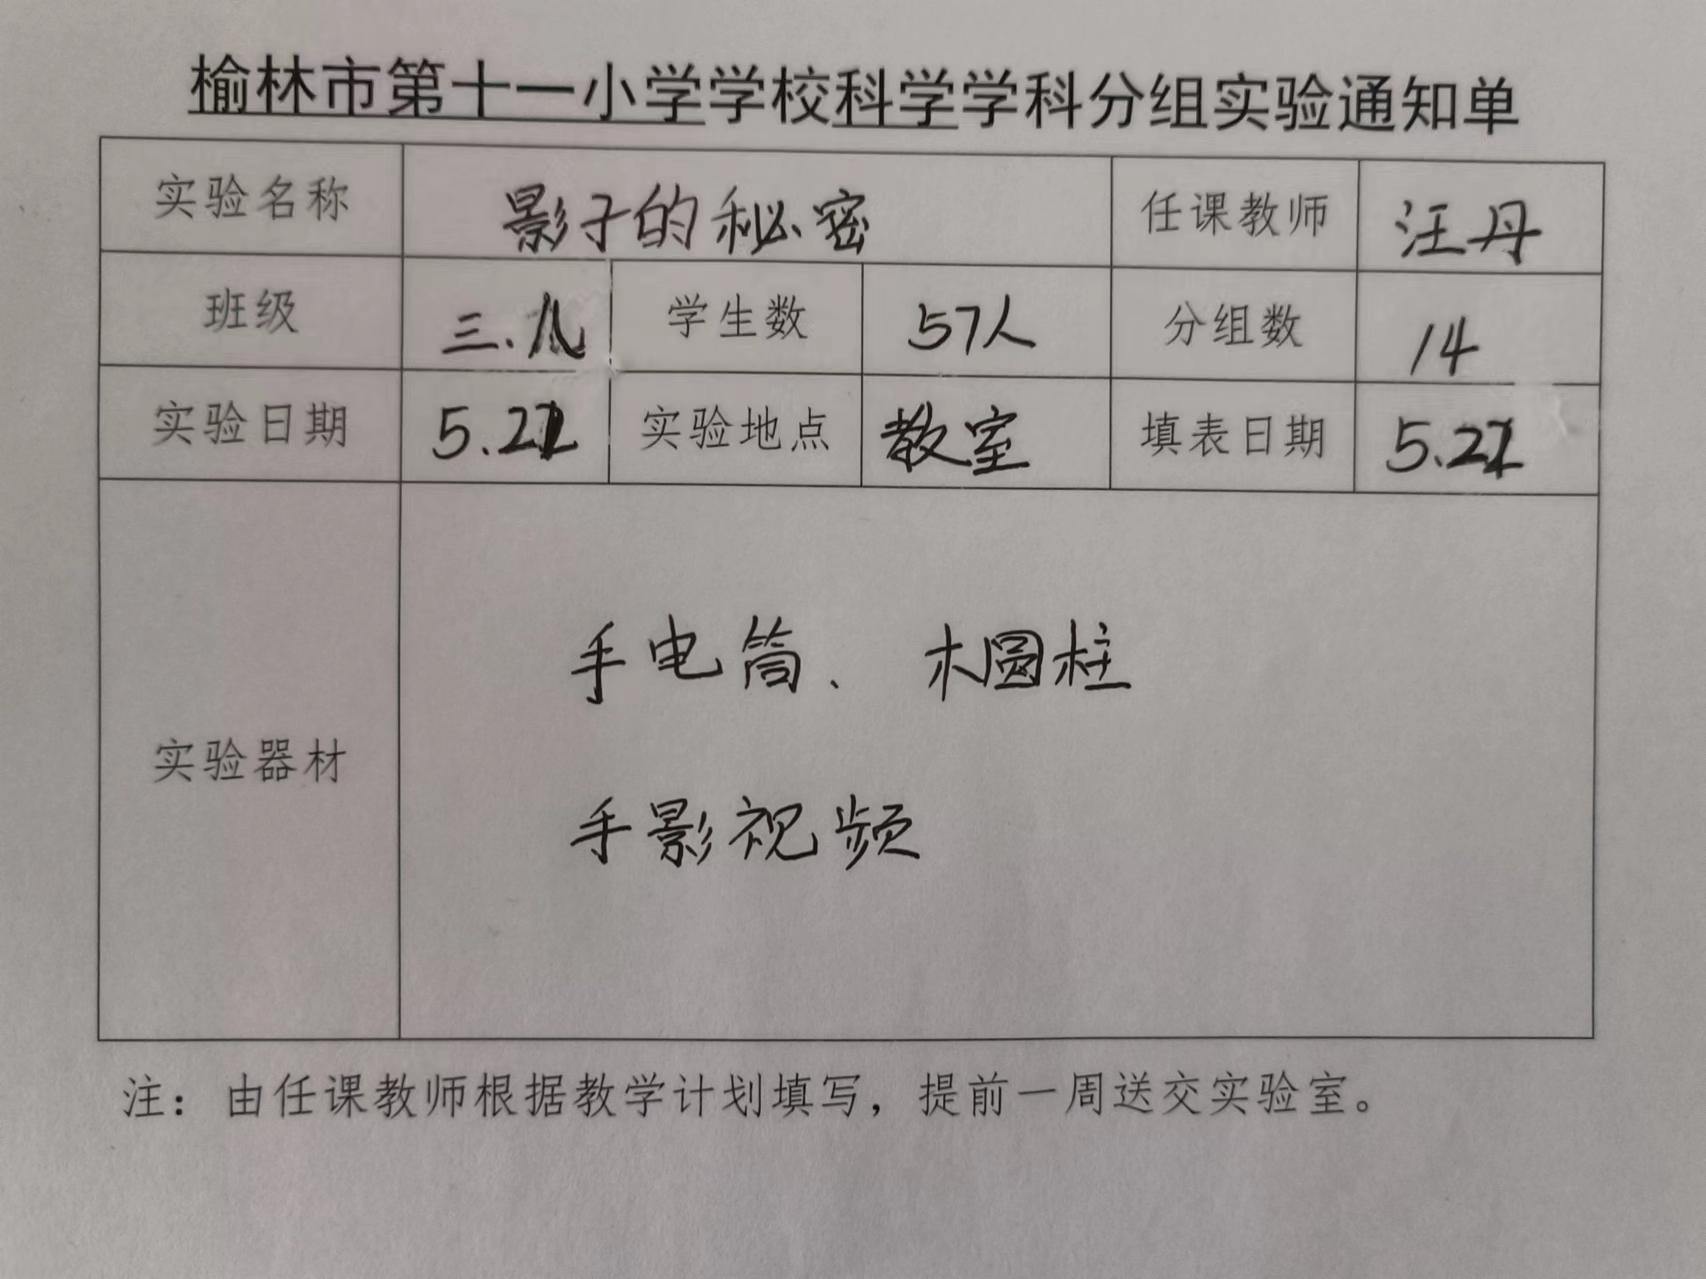 榆林市第十一小学学校科学学科分组实验通知单
实验名称 影子的秘密 任课教师 汪丹
班级 三.八 学生数 57人 分组数 14
实验日期 实验地点 教室 填表日期
实验器材 手电筒、木圆柱
手影视频
注：由任课教师根据教学计划填写，提前一周送交实验室。